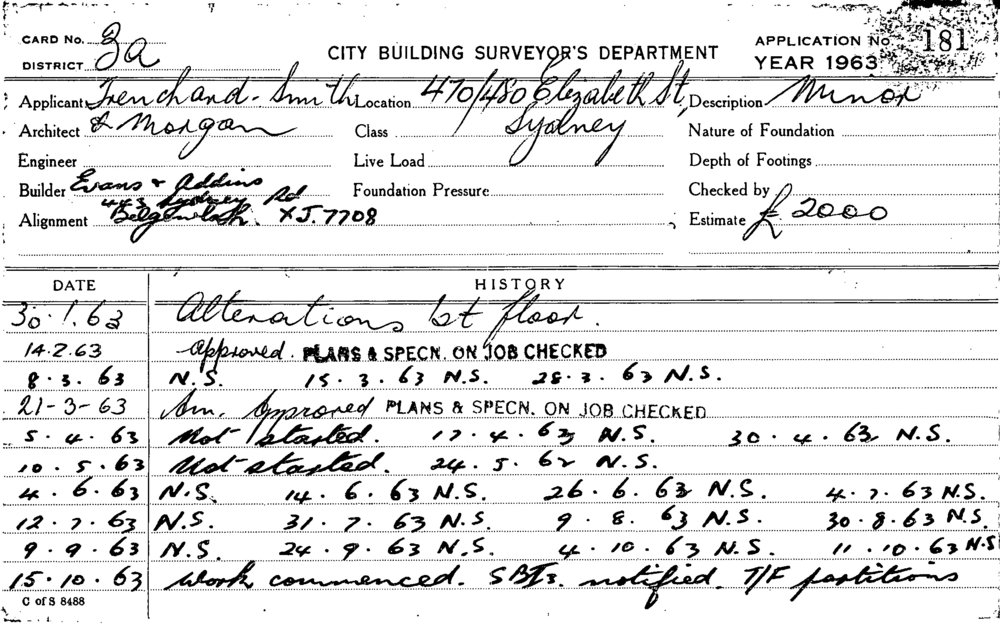 CARD No. 3a CITY BUILDING SURVEYOR'S DEPARTMENT APPLICATION No. 181
DISTRICT YEAR 1963
Applicant Trenchard-Smith Location 470/480 Elizabeth St, Description Minor
Architect & Morgan Class Sydney Nature of Foundation
Engineer Live Load Depth of Footings
Builder Evans & Addins Foundation Pressure Checked by
443 Sydney Rd
Alignment XJ.7708 Estimate £2000
DATE HISTORY
30.1.63 Alterations 1st floor.
14.2.63 Approved. PLANS & SPECN. ON JOB CHECKED
8.3.63 N.S. 15.3.63 N.S. 28.3.63 N.S.
21-3-63 Am. Approved PLANS & SPECN. ON JOB CHECKED
5.4.63 Not started. 17.4.63 N.S. 30.4.63 N.S.
10.5.63 Not started. 24.5.62 N.S.
4.6.63 N.S. 14.6.63 N.S. 26.6.63 N.S. 4.7.63 N.S.
12.7.63 N.S. 31.7.63 N.S. 9.8.63 N.S. 30.8.63 N.S.
9.9.63 N.S. 24.9.63 N.S. 4.10.63 N.S. 11.10.63 N.S
15.10.63 Work commenced. SBIs. notified. T/F partitions
C of S 8488